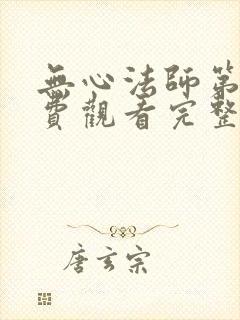 無心法師第
費觀看完整
唐玄宗